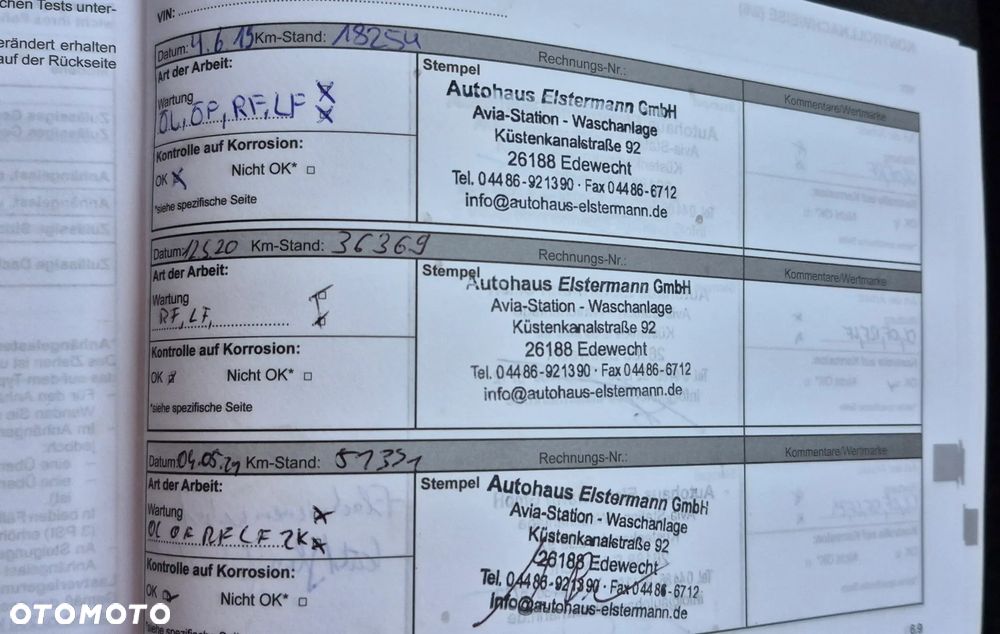 chen Tests unter-
erändert erhalten
auf der Rückseite
VIN:
KONTROLLNACHWEISE (2/6)
Datum: 4.6.19 Km-Stand: 18254 Rechnungs-Nr.:
Art der Arbeit:
Wartung
ÖL, ÖF, RF, LF
Kontrolle auf Korrosion:
OK Nicht OK*
*siehe spezifische Seite
Stempel
Autohaus Elstermann GmbH
Avia-Station - Waschanlage
Küstenkanalstraße 92
26188 Edewecht
Tel. 04486-921390 · Fax 04486-6712
info@autohaus-elstermann.de
Kommentare/Wertmarke
Datum: 12.5.20 Km-Stand: 36369 Rechnungs-Nr.:
Art der Arbeit:
Wartung
RF, LF,
Kontrolle auf Korrosion:
OK Nicht OK*
*siehe spezifische Seite
Stempel
Autohaus Elstermann GmbH
Avia-Station - Waschanlage
Küstenkanalstraße 92
26188 Edewecht
Tel. 04486-921390 · Fax 04486-6712
info@autohaus-elstermann.de
Kommentare/Wertmarke
Datum: 04.05.21 Km-Stand: 51351 Rechnungs-Nr.:
Art der Arbeit:
Wartung
ÖL OF RF LF ZK
Kontrolle auf Korrosion:
OK Nicht OK*
*siehe spezifische Seite
Stempel
Autohaus Elstermann GmbH
Avia-Station - Waschanlage
Küstenkanalstraße 92
26188 Edewecht
Tel. 04486-921390 · Fax 04486-6712
info@autohaus-elstermann.de
Kommentare/Wertmarke
69
OTOMOTO